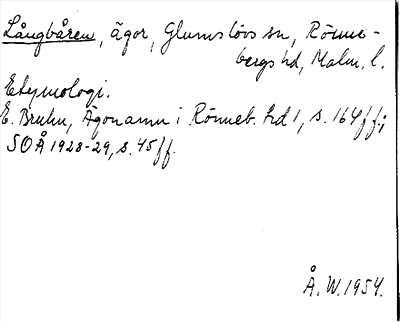 Långbåren, ägor, Glumslövs sn, Rönne-
bergs hd, Malm. l.
Etymologi.
E. Bruhn, Ägonamn i Rönneb. hd 1, s. 164ff;
SOÅ 1928-29, s. 45ff.
Å. W. 1954.